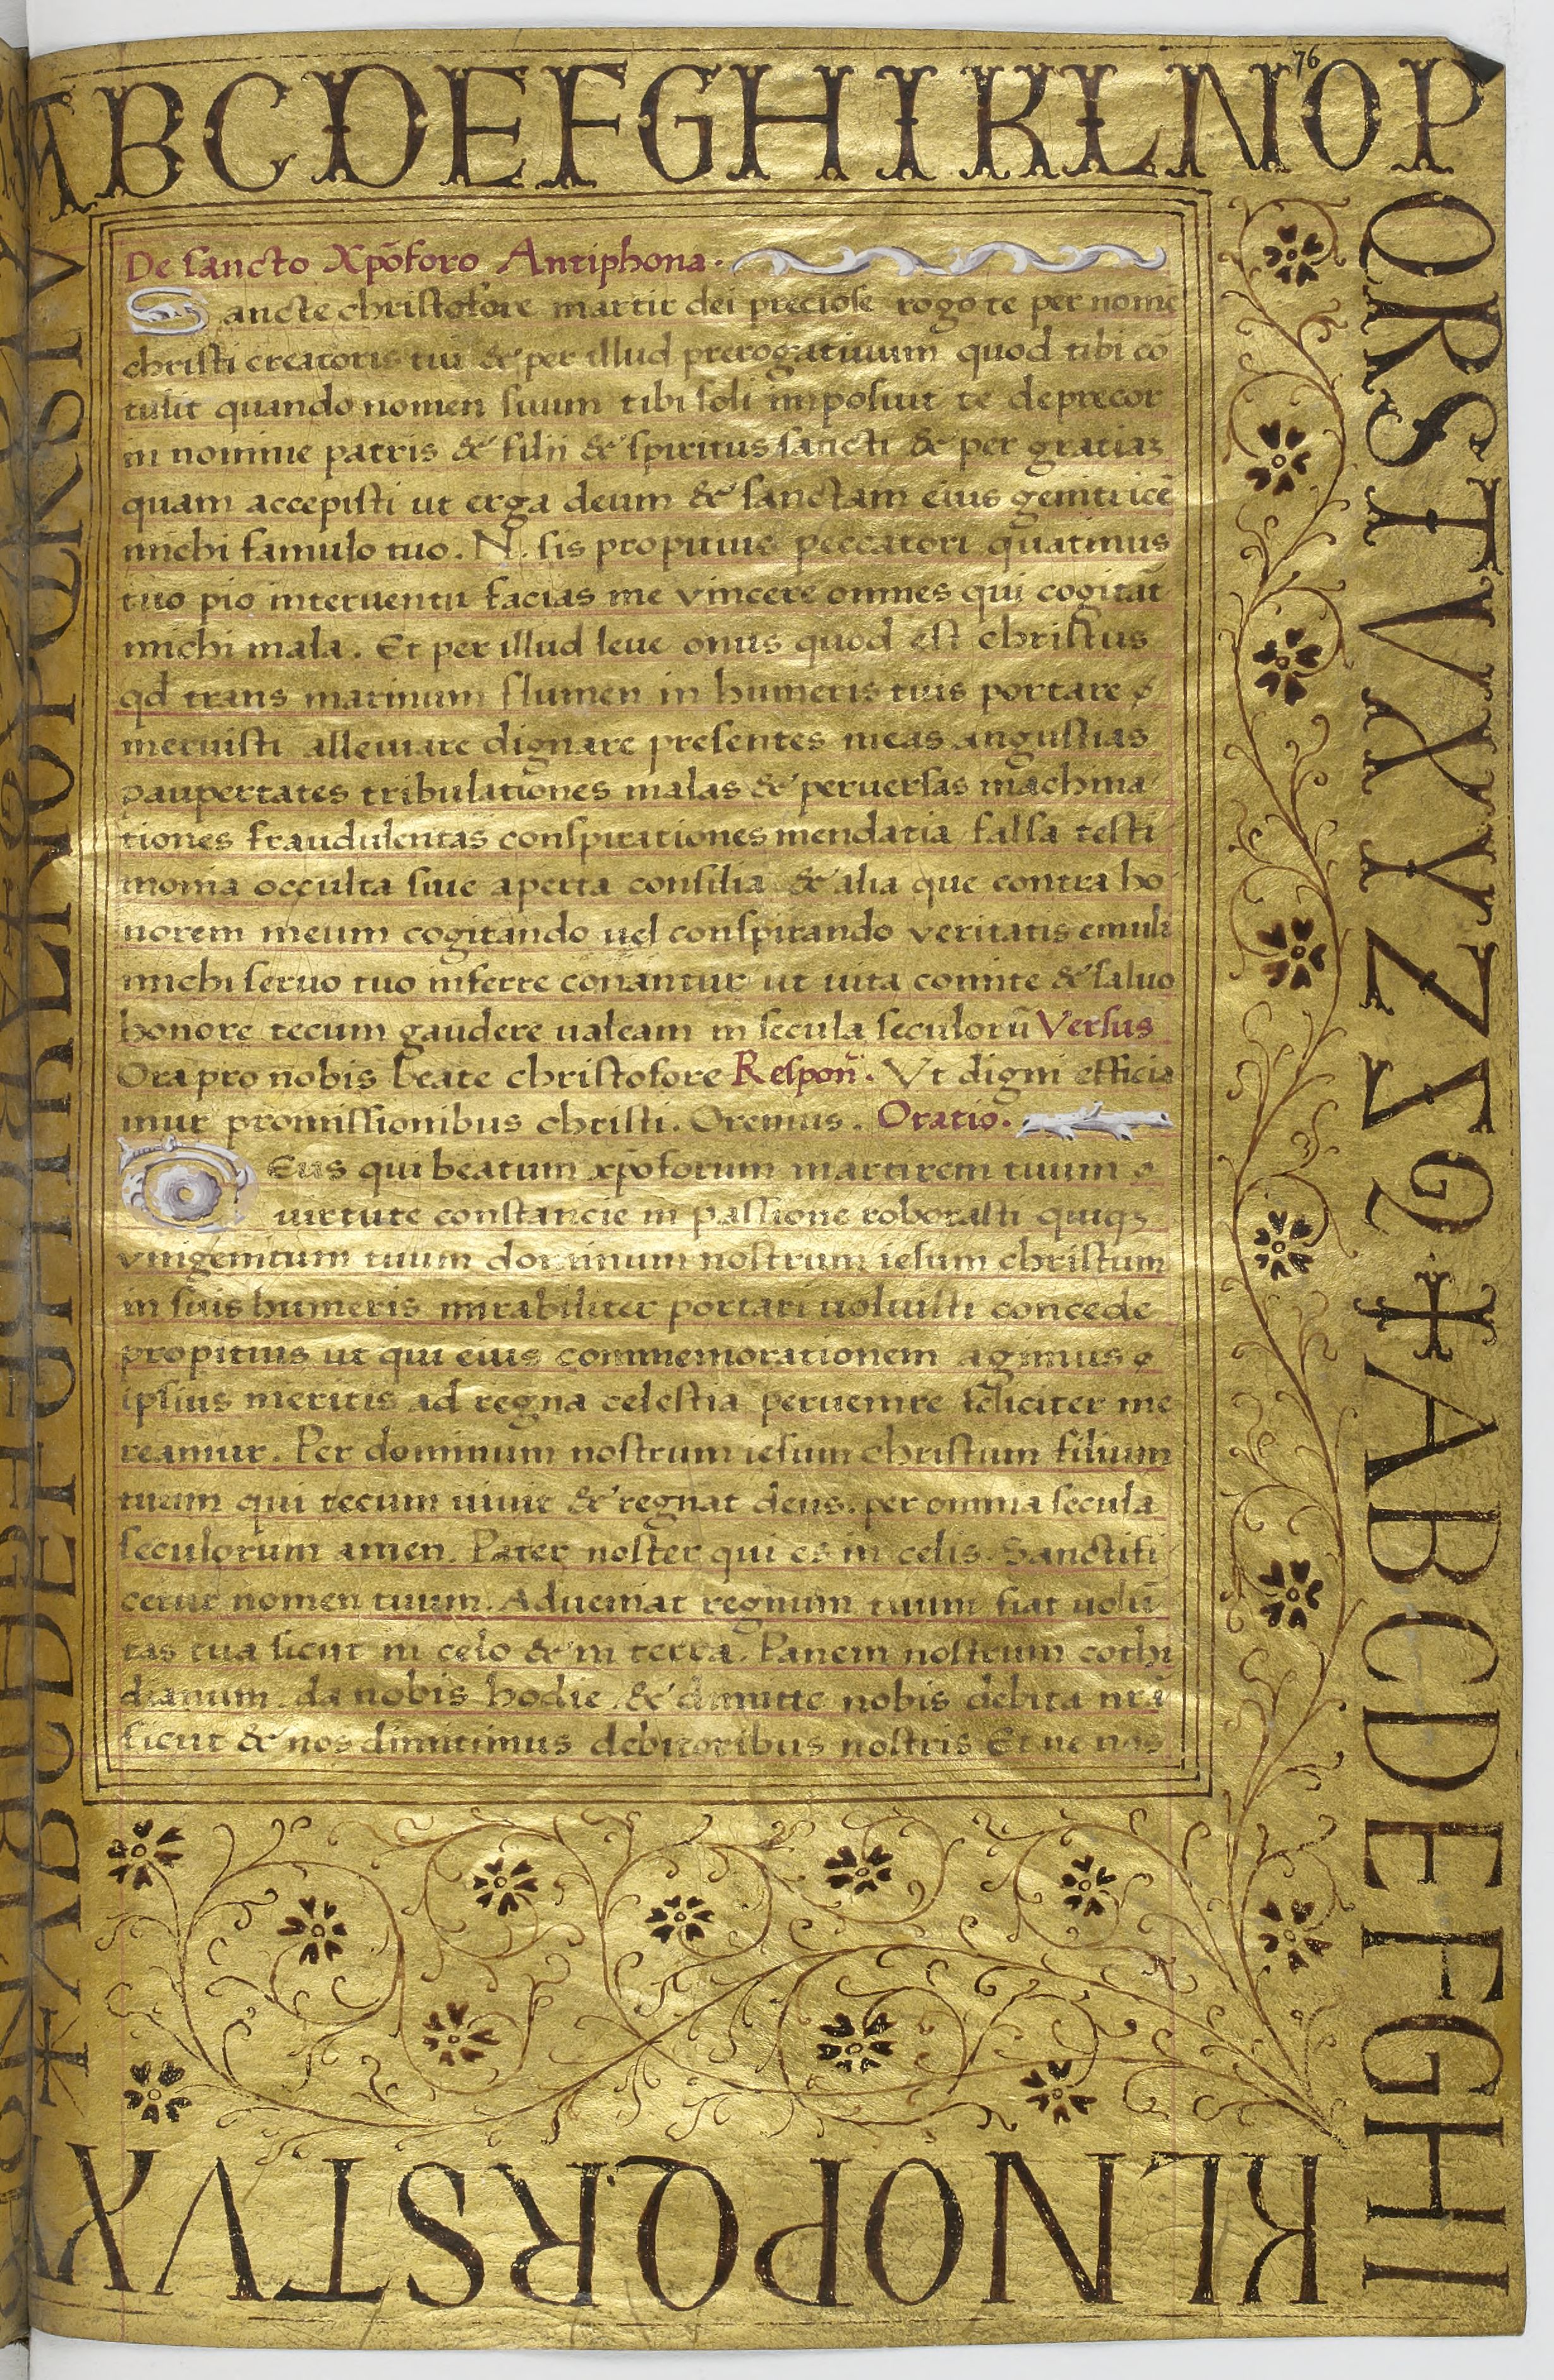 76
ABCDEFGHIKLNOP
QRSTVXYZ
ABCDEFGHI
KLNOPQRSTVX
De sancto Xp̄oforo Antiphona.
Sancte christofore martir dei preciose rogo te per nomē
christi creatoris tui & per illud prerogatiuum quod tibi cō
tulit quando nomen suum tibi soli imposuit te deprecor
in nomine patris & filii & spiritus sancti & per gratiaꝫ
quam accepisti ut erga deum & sanctam eius genitricē
michi famulo tuo. N. sis propitius peccatori quatinus
tuo pio interuentu facias me vincere omnes qui cogitāt
michi mala. Et per illud leue onus quod est christus
qd̄ trans marinum flumen in humeris tuis portare
meruisti alleuiare dignare presentes meas angustias
paupertates tribulationes malas & peruersas machina
tiones fraudulentas conspirationes mendatia falsa testi
monia occulta siue aperta consilia & alia que contra ho
norem meum cogitando uel conspirando veritatis emuli
michi seruo tuo inferre conantur ut uita comite & saluo
honore tecum gaudere ualeam in secula seculorū Versus
Ora pro nobis beate christofore Respon̄. Vt digni efficia
mur promissionibus christi. Oremus. Oratio.
Deus qui beatum xp̄oforum martirem tuum
uirtute constancie in passione roborasti quiqꝫ
vnigenitum tuum dominum nostrum iesum christum
in suis humeris mirabiliter portari uoluisti concede
propitius ut qui eius commemorationem agimus
ipsius meritis ad regna celestia peruenire feliciter me
reamur. Per dominum nostrum iesum christum filium
tuum qui tecum uiuit & regnat deus. per omnia secula
seculorum amen. Pater noster qui es in celis. Sanctifi
cetur nomen tuum. Adueniat regnum tuum fiat uolū
tas tua sicut in celo & in terra. Panem nostrum cothi
dianum. da nobis hodie. & dimitte nobis debita nr̄a
sicut & nos dimitimus debitoribus nostris Et ne nos